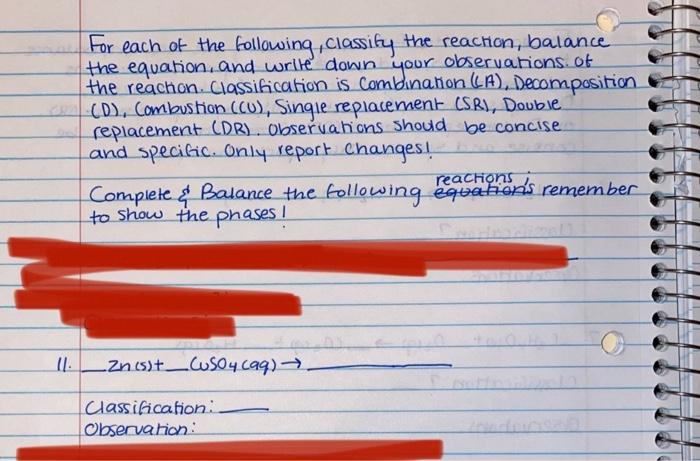 For each of the following, classify the reaction, balance
the equation, and write down your observations of
the reaction. Classification is Combination (CA), Decomposition
(D), Combustion (CU), Single replacement (SR), Double
replacement (DR). Observations should be concise
and specific. Only report changes!
Complete & Balance the following equations reactions ; remember
to show the phases!
11. __Zn(s) + __CuSO4(aq) → ________
Classification: ____
Observation: